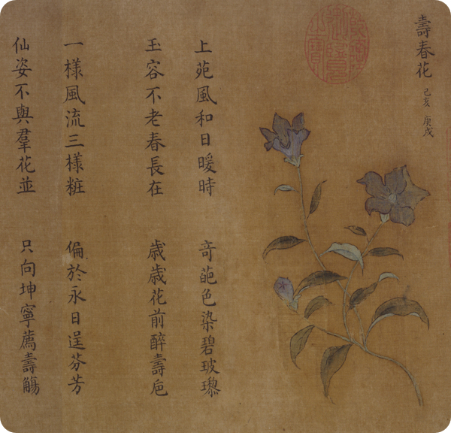 壽春花 己亥 庚戌
上苑風和日暖時 奇葩色染碧玻瓈
玉容不老春長在 歲歲花前醉壽卮
一樣風流三樣粧 偏於永日逞芬芳
仙姿不與羣花並 只向坤寧薦壽觴